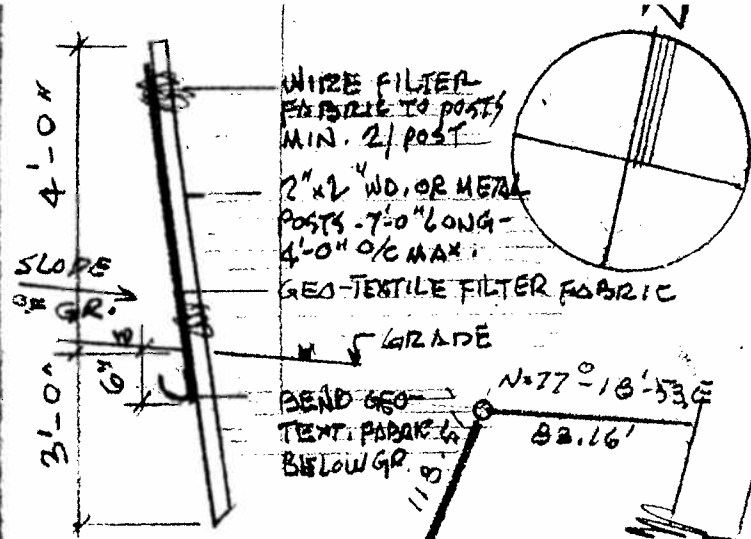 4'-0"
WIRE FILTER
FABRIC TO POSTS
MIN. 2/POST
2"x2" WD. OR METAL
POSTS-7'-0" LONG-
4'-0" O/C MAX.
SLOPE
GR.
GEO-TEXTILE FILTER FABRIC
GRADE
6"
3'-0"
BEND GEO-
TEXT. FABRIC 6"
BELOW GR.
N=77°-18'-53
83.16'
118.